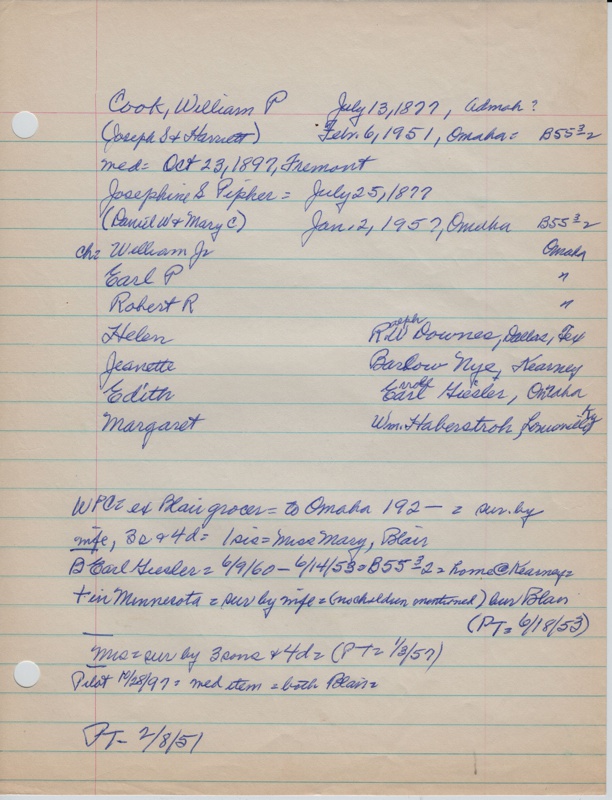 Cook, William P July 13, 1877, Admah?
(Joseph S & Harriett) Febr. 6, 1951, Omaha = B55 3-2
med = Oct 23, 1897, Fremont
Josephine S Pipher = July 25, 1877
(Daniel W & Mary C) Jan. 2, 1957, Omaha B55 3-2
ch = William Jr Omaha
Earl P "
Robert R "
Helen Ralph W Downes, Dallas, Tex
Jeanette Barlow Nye, Kearney
Edith Earl Giesler, Omaha
Margaret Wm. Haberstroh, Louisville, Ky
WPC = ex Blair grocer = to Omaha 192— = sur. by
wife, 3s & 4d = 1 sis = Miss Mary, Blair
B Earl Giesler = 6/9/60 — 6/14/53 = B55 3-2 = home @ Kearney =
+ in Minnesota = sur by wife = (no children mentioned) bur Blair
(PT = 6/18/53)
Mrs = sur by 3 sons & 4d = (PT = 1/3/57)
Pilot 10/28/97 = med item = both Blair =
PT- 2/8/51